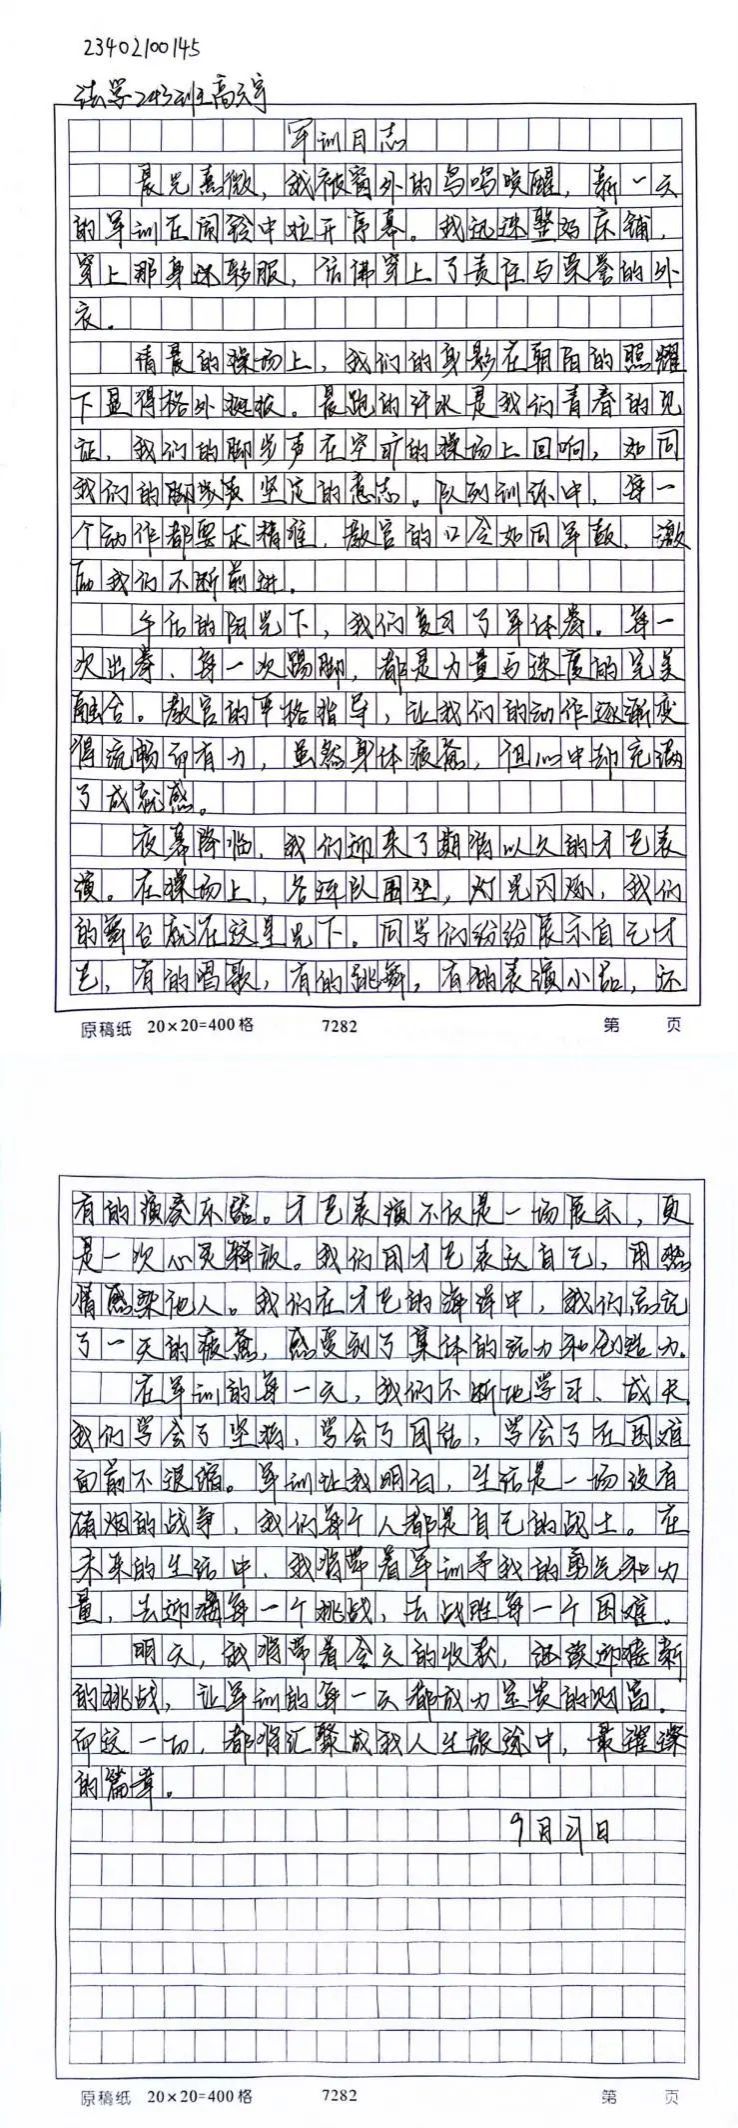 23402100145
法学243班高天宇
军训日志
晨光熹微，我被窗外的鸟鸣唤醒，新一天
的军训在闹铃中拉开序幕。我迅速整好床铺，
穿上那身迷彩服，仿佛穿上了责任与荣誉的外
衣。
清晨的操场上，我们的身影在朝阳的照耀
下显得格外挺拔。晨跑的汗水是我们青春的见
证，我们的脚步声在空旷的操场上回响，如同
我们的脚步声坚定的意志。队列训练中，每一
个动作都要求精准，教官的口令如同军鼓，激
励我们不断前进。
午后的阳光下，我们复习了军体拳。每一
次出拳、每一次踢脚，都是力量与速度的完美
融合。教官的严格指导，让我们的动作逐渐变
得流畅而有力，虽然身体疲惫，但心中却充满
了成就感。
夜幕降临，我们迎来了期待以久的才艺表
演。在操场上，各连队围坐，灯光闪烁，我们
的舞台就在这星光下。同学们纷纷展示自己才
艺，有的唱歌，有的跳舞，有的表演小品，还
原稿纸 20×20=400格 7282 第 页
有的演奏乐器。才艺表演不仅是一场展示，更
是一次心灵释放。我们用才艺表达自己，用热
情感染他人。我们在才艺的海洋中，我们忘记
了一天的疲惫，感受到了集体的活力和创造力。
在军训的每一天，我们不断地学习、成长，
我们学会了坚持，学会了团结，学会了在困难
面前不退缩。军训让我明白，生活是一场没有
硝烟的战争，我们每个人都是自己的战士。在
未来的生活中，我将带着军训予我的勇气和力
量，去迎接每一个挑战，去战胜每一个困难。
明天，我将带着今天的收获，继续迎接新
的挑战，让军训的每一天都成为宝贵的财富。
而这一切，都将汇聚成我人生旅途中，最璀璨
的篇章。
9月21日
原稿纸 20×20=400格 7282 第 页